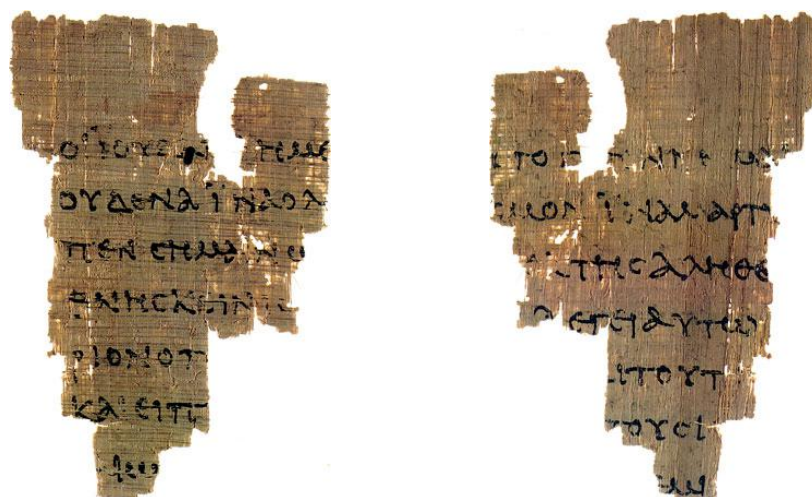 ΟΙΪΟΥΔΑΙ ΗΜΕ
ΟΥΔΕΝΑΪΝΑΟΛ
ΠΕΝϹΗΜΑΙΝΩ
ΘΝΗϹΚΕΙΝ
ΡΙΟΝΟΠ
ΚΑΙΕΙΠ
ΑΙΩ
ΤΟ ΝΝΗ
ϹΜΟΝΪΝΑΜΑΡΤΥ
ΕΚΤΗϹΑΛΗΘΕ
ΛΕΓΕΙΑΥΤΩ
ΑΙΤΟΥΤ
ΤΟΥϹΙ
ΜΙ